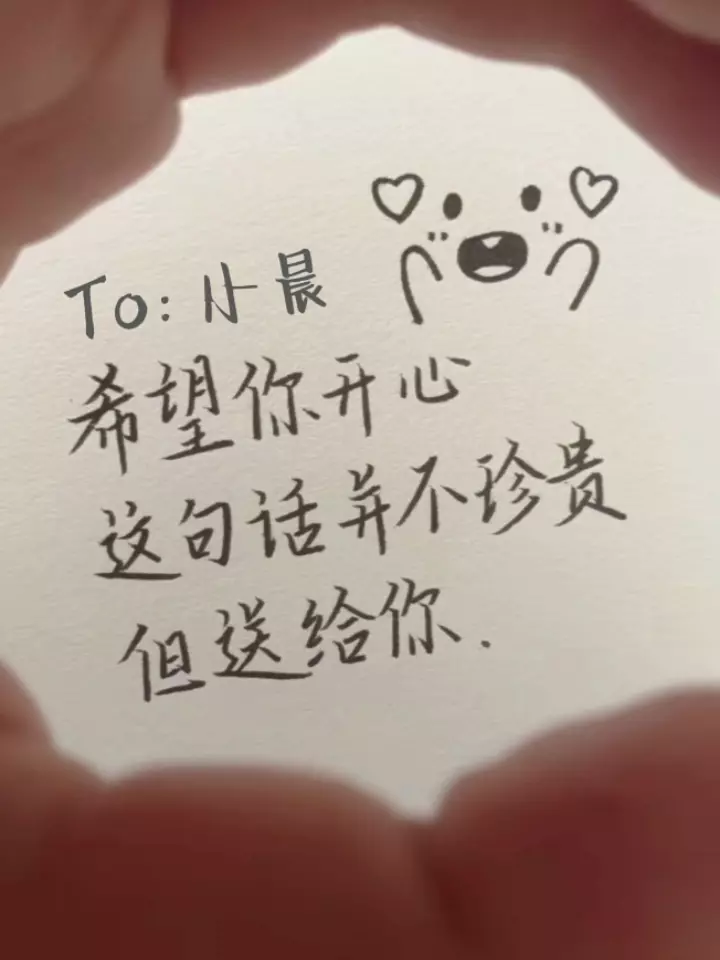 To: 小晨
希望你开心
这句话并不珍贵
但送给你.